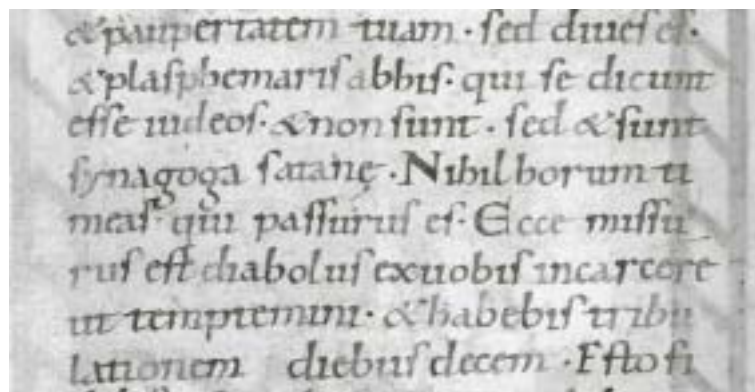 &paupertatem tuam · sed diues es ·
&plasphemaris abhis · qui se dicunt
esse iudeos · &non sunt · sed & sunt
synagoga satanę · Nihil horum ti
meas · qui passurus es · Ecce missu
rus est diabolus exuobis incarcere
ut temptemini · & habebis tribu
lationem diebus decem · Esto fi